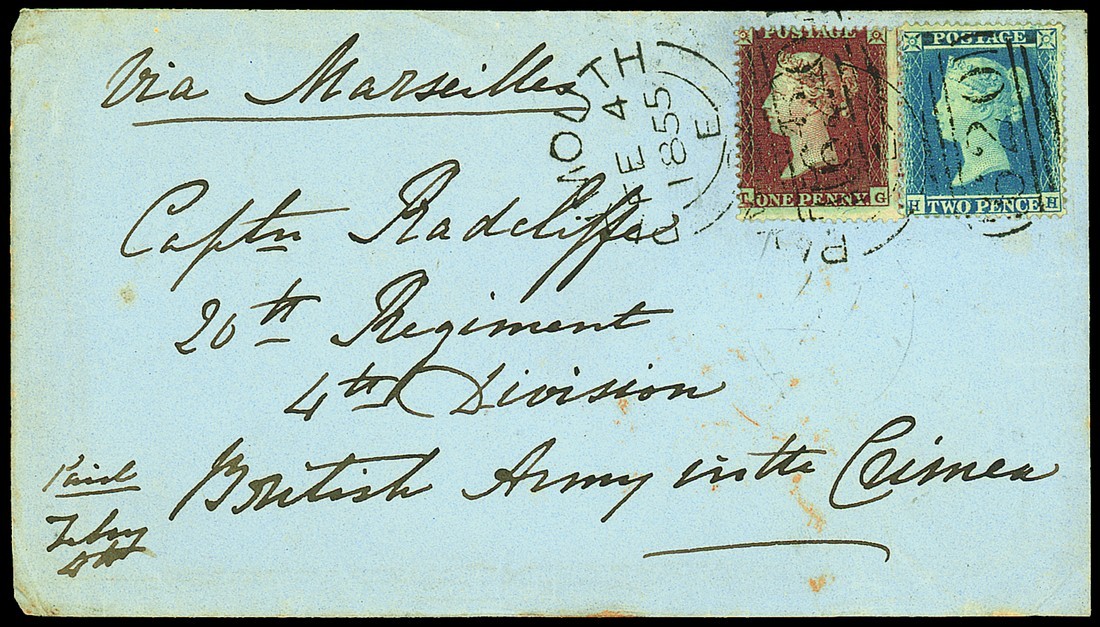 Via Marseilles
POSTAGE
T ONE PENNY G
POSTAGE
H TWO PENCE H
FE 4
1855
E
620
Captn Radcliffe
20th Regiment
4th Division
British Army in the Crimea
Paid
Feby
4th